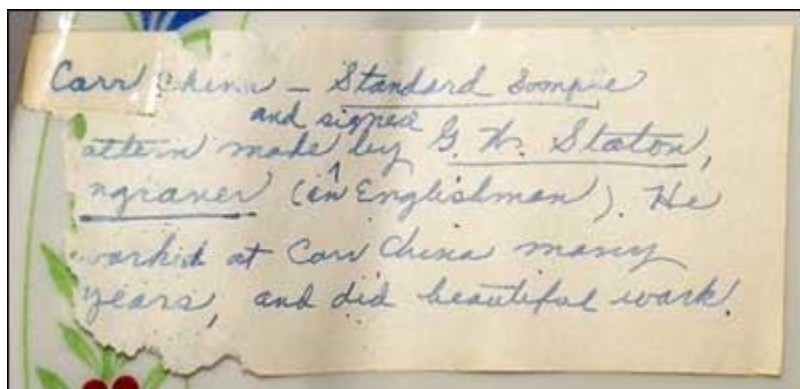 Carr China – Standard Sample
and signed
attern made by G. W. Staton,
ngraver (an Englishman). He
worked at Carr China many
years, and did beautiful work.